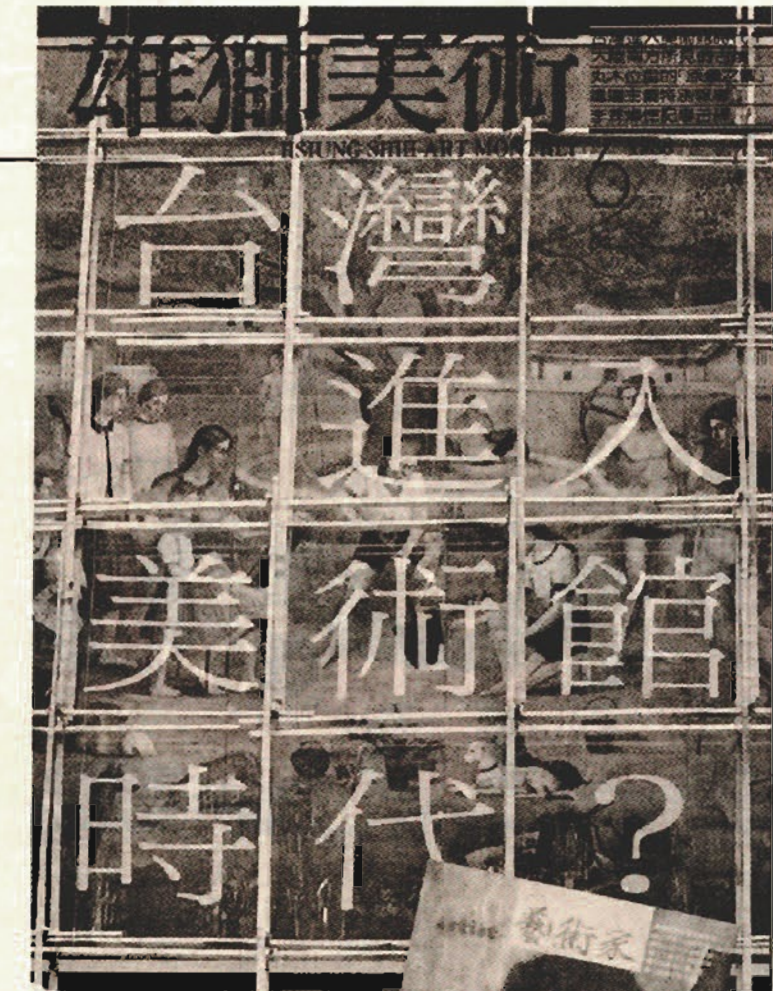 雄獅美術
HSIUNG SHIH ART MONTHLY
6
台灣
進入
美術館
時代?
artist 藝術家